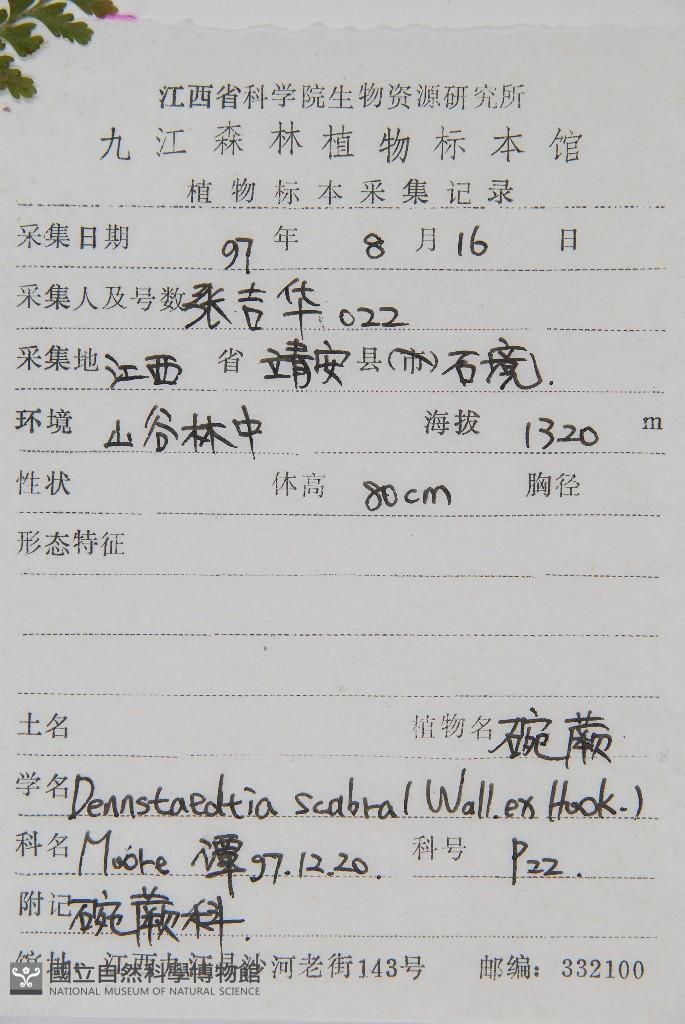 江西省科学院生物资源研究所
九江森林植物标本馆
植物标本采集记录
采集日期 97 年 8 月 16 日
采集人及号数 张吉华 022
采集地 江西 省 靖安 县(市) 石境.
环境 山谷林中 海拔 1320 m
性状 体高 80cm 胸径
形态特征
土名 植物名 碗蕨
学名 Dennstaedtia scabra (Wall.ex Hook.)
科名 Moore 谭 97.12.20. 科号 P22.
附记 碗蕨科.
馆址: 江西九江县沙河老街143号 邮编: 332100
國立自然科學博物館
NATIONAL MUSEUM OF NATURAL SCIENCE